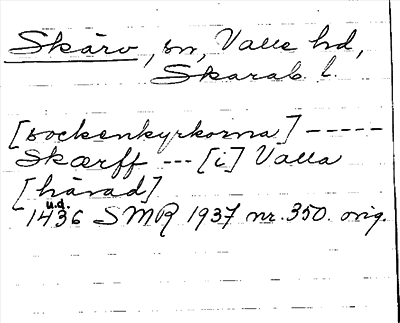 Skärv, sn, Valle hd,
Skarab. l.
[sockenkyrkorna] -----
Skærff --- [i] Valla
[härad]
u.d.
1436 SMR 1937 nr. 350. orig.